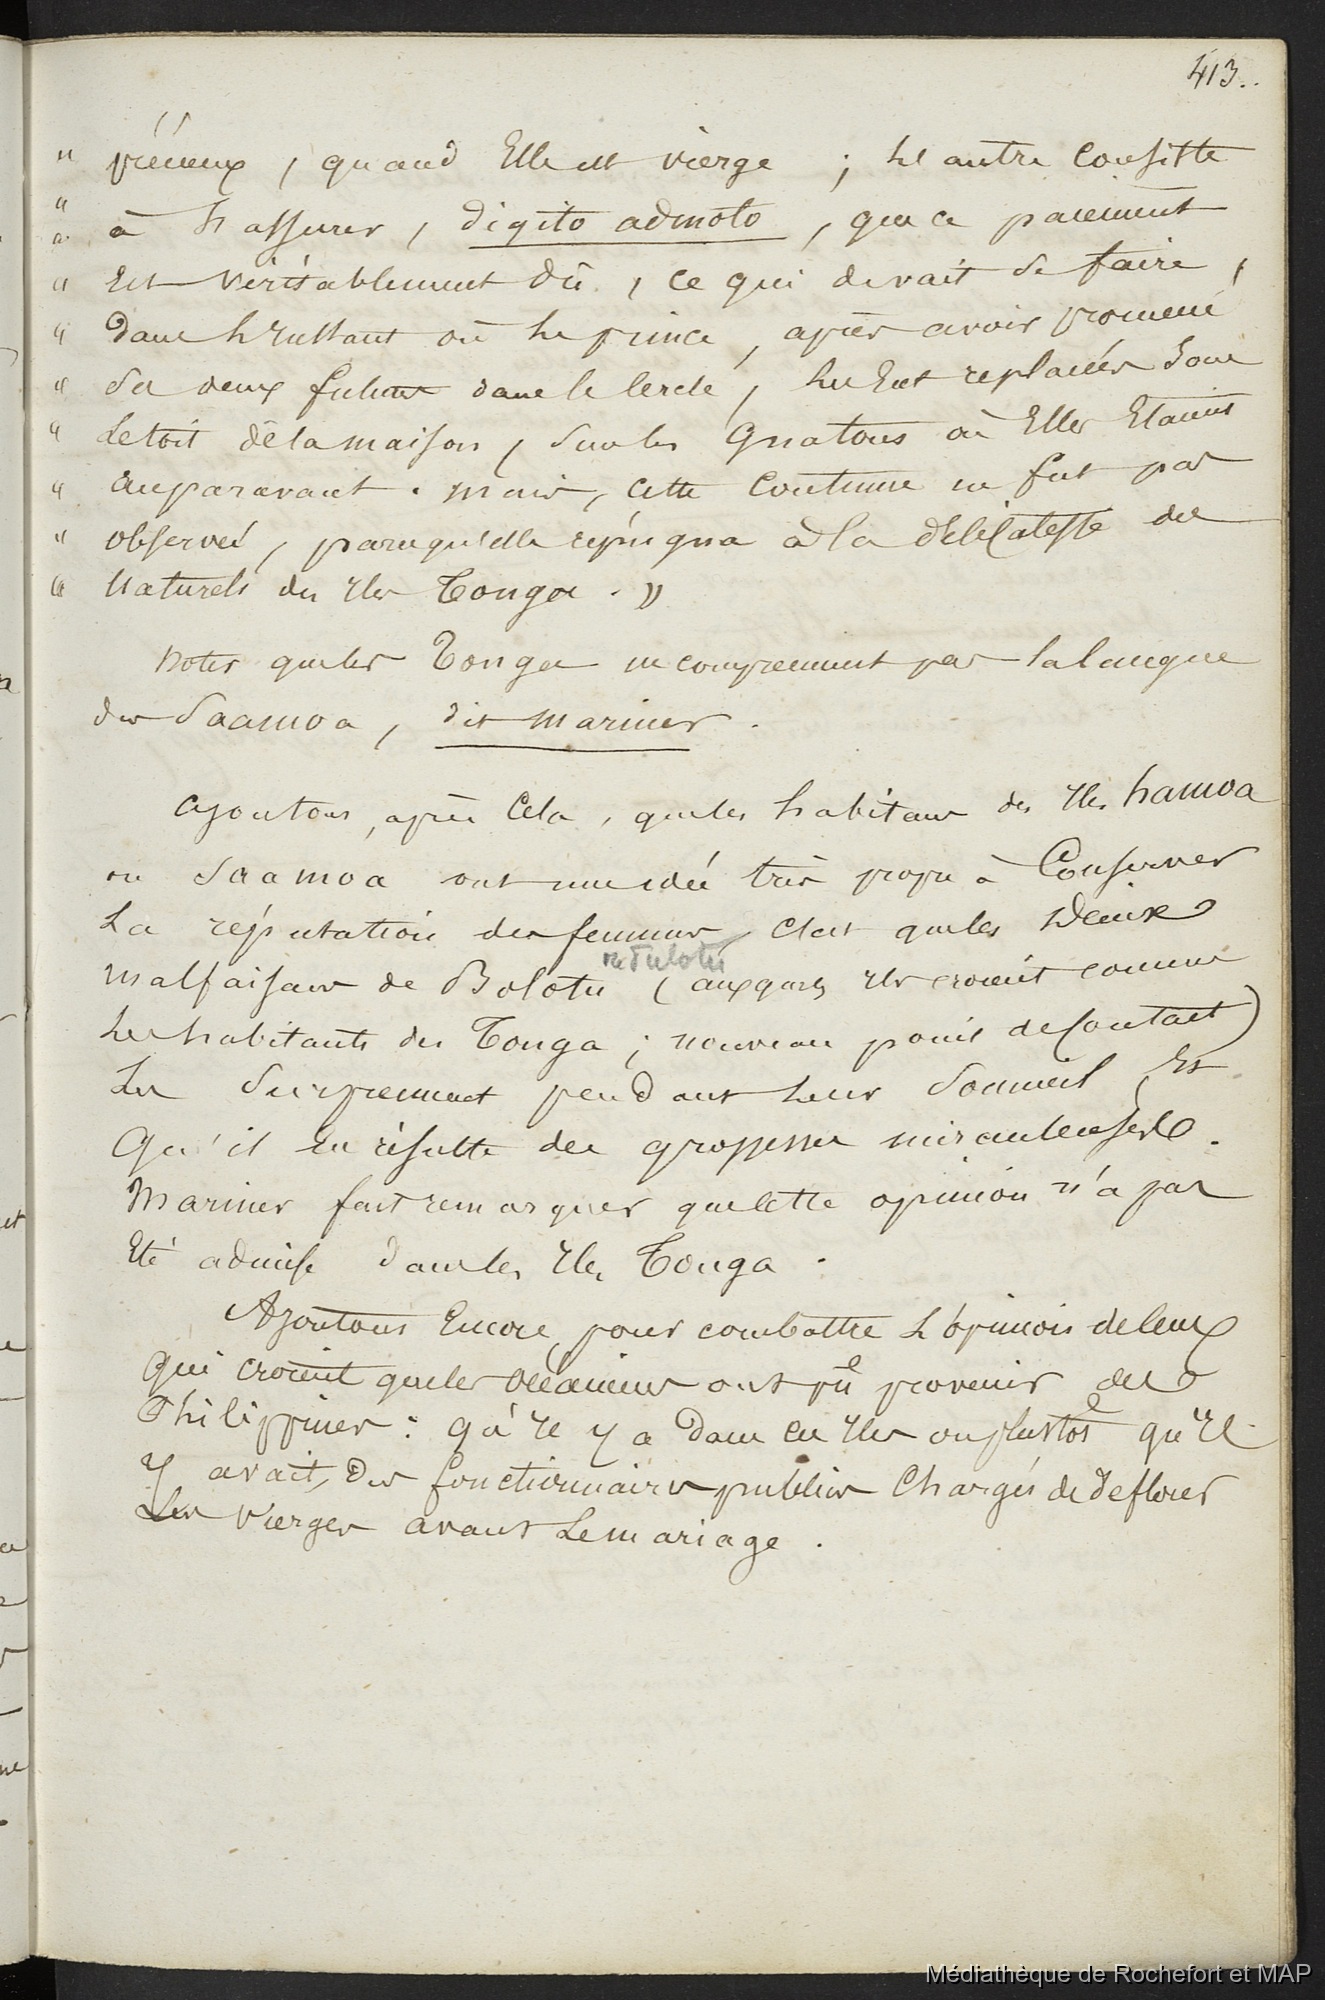 413..
" précieux, quand Elle est vierge ; l'autre Consiste
" à s'assurer, digito admoto, que ce paiement
" Est véritablement dû, ce qui devait se faire,
" Dans l'instant où le prince, après avoir promené
" Ses deux futures dans le Cercle, les Eut replacées Sous
" le toit de la maison, Sur les Gnatous où Elles Etaient
" auparavant. mais, cette Coutume ne fut pas
" observée, parcequ'elle répugna à la délicatesse des
" Naturels des Iles Tonga. »
Notez que les Tonga ne comprennent pas la langue
des Saamoa, dit Mariner.
Ajoutons, après Cela, que les habitans des Iles hamoa
ou Saamoa ont une idée très propre à Conserver
La réputation des femmes, C'est que les Dieux
Pulotu
malfaisans de Bolotu (auxquels ils croient comme
les habitants des Tonga ; nouveau point de Contact)
Les Surprennent pendant leur Sommeil, Et
Qu'il en résulte des grossesses miraculeuses.
Mariner fait remarquer que cette opinion n'a pas
Eté admise dans les Iles Tonga.
Ajoutons Encore, pour combattre L'opinion de Ceux
Qui croient que les Océaniens ont pû provenir des
Philippines : qu'Il y a Dans ces Iles ou plustôt qu'Il
Y avait, Des fonctionnaires publics Chargés de deflorer
Les vierges avant Le mariage.
Médiathèque de Rochefort et MAP